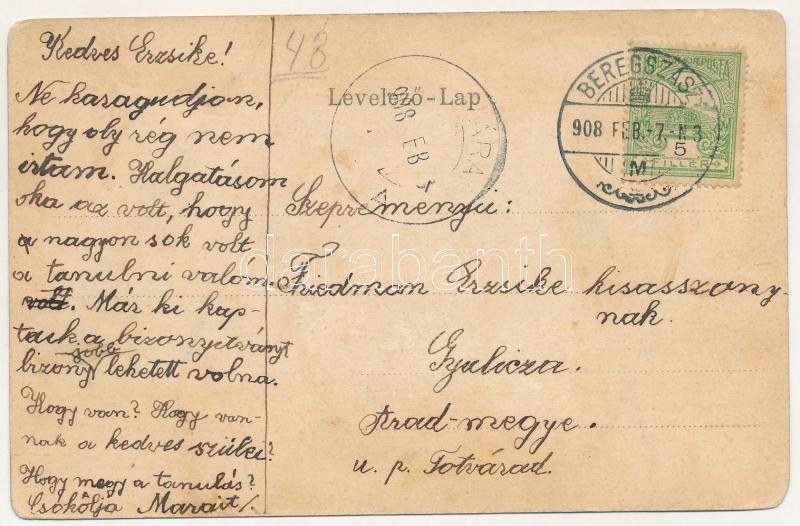 Kedves Erzsike!
Ne karagudjon,
hogy oly rég nem
irtam. Halgatásom
oka az volt, hogy
a nagyon sok volt
a tanulni valom.
volt. Már ki kap-
tuk a bizonyitványt
jobb
bizony lehetett volna.
Hogy van? Hogy van-
nak a kedves szülei?
Hogy megy a tanulás?
Csókolja
48
Levelező-Lap
908 FEB
BEREGSZÁSZ
908 FEB.-7.-N 3
M
POSTA
5
FILLÉR
Szepreményü:
Friedman Erzsike kisasszony-
nak.
Gyulicza.
Arad-megye.
u. p. Totvárad.
darabanth.com